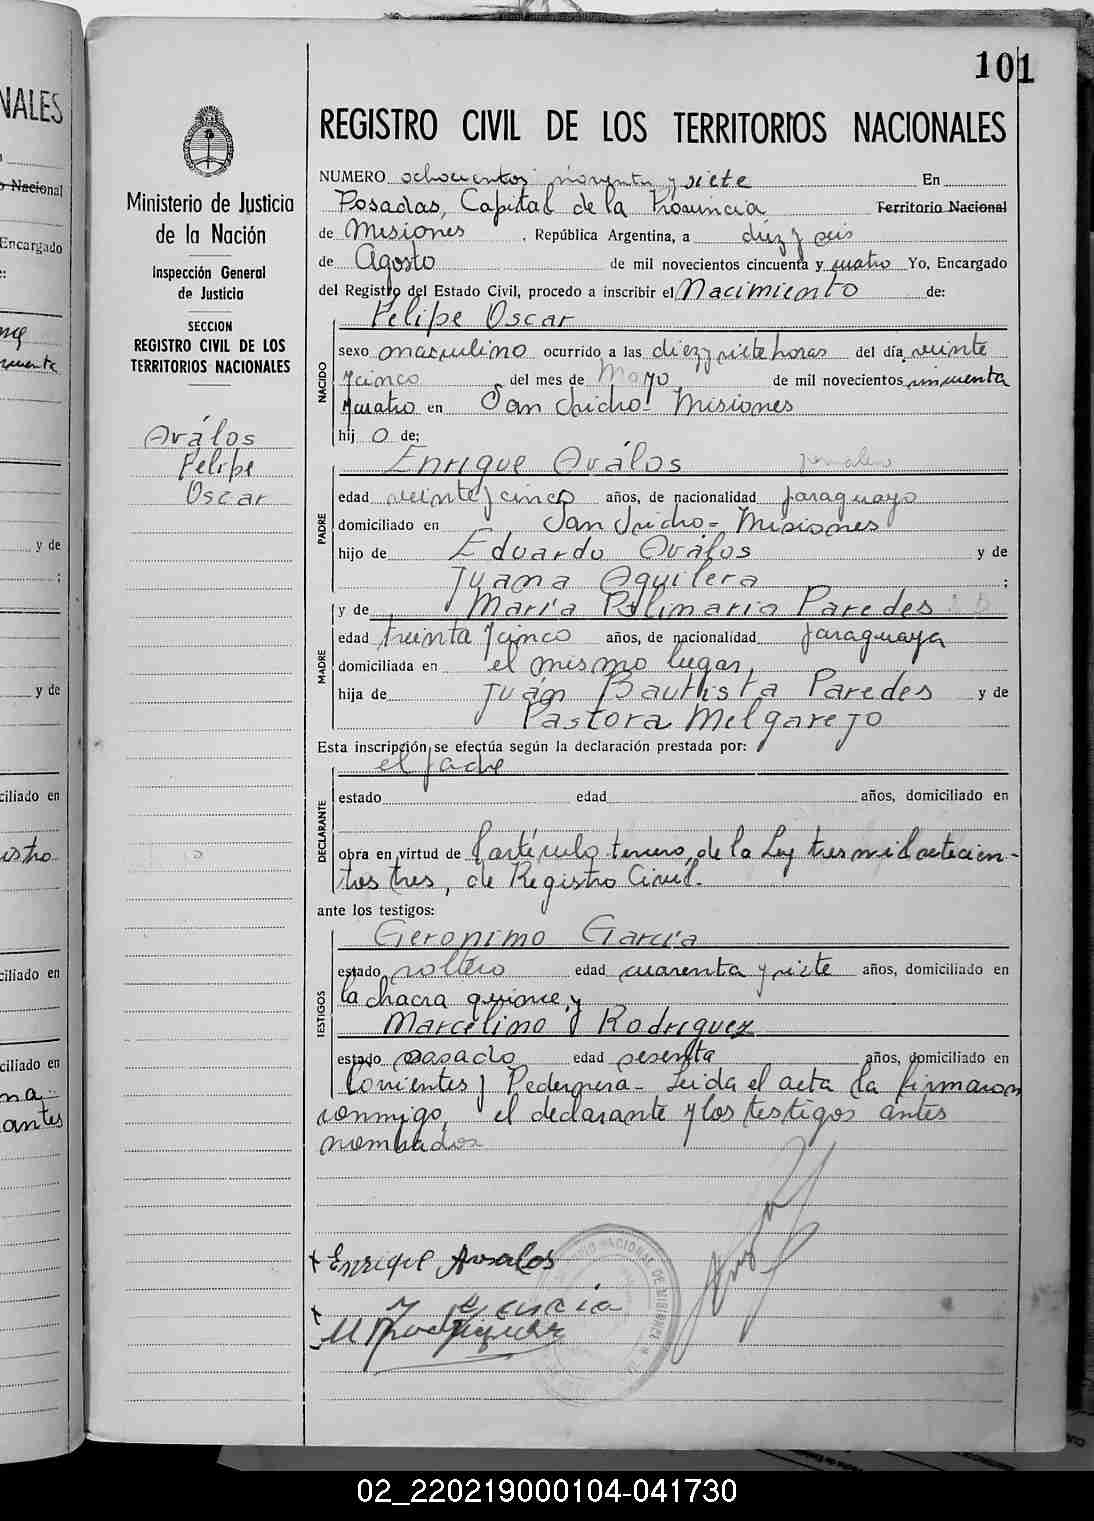 101
NALES
o Nacional
Encargado
y de
y de
ciliado en
istro
ciliado en
ciliado en
antes
Ministerio de Justicia
de la Nación
Inspección General
de Justicia
SECCION
REGISTRO CIVIL DE LOS
TERRITORIOS NACIONALES
Aválos
Felipe
Oscar
REGISTRO CIVIL DE LOS TERRITORIOS NACIONALES
NUMERO ochocientos noventa y siete En
Posadas, Capital de la Provincia Territorio Nacional
de Misiones, República Argentina, a diez y seis
de Agosto de mil novecientos cincuenta y cuatro Yo, Encargado
del Registro del Estado Civil, procedo a inscribir el Nacimiento de:
NACIDO
Felipe Oscar
sexo masculino ocurrido a las diez y siete horas del día veinte
y cinco del mes de Mayo de mil novecientos cincuenta
y cuatro en San Isidro - Misiones
hij o de:
PADRE
Enrique Aválos
edad veinte y cinco años, de nacionalidad paraguayo
domiciliado en San Isidro - Misiones
hijo de Eduardo Aválos y de
Juana Aquilera ;
MADRE
y de María Polimaria Paredes
edad treinta y cinco años, de nacionalidad paraguaya
domiciliada en el mismo lugar,
hija de Juán Bautista Paredes y de
Pastora Melgarejo
Esta inscripción se efectúa según la declaración prestada por:
DECLARANTE
el padre
estado edad años, domiciliado en
obra en virtud de l'artículo tercero, de la Ley tres mil setecien-
tos tres, de Registro Civil.
ante los testigos:
TESTIGOS
Geronimo García
estado soltero edad cuarenta y siete años, domiciliado en
la chacra quince, y
Marcelino Rodriguez
estado casado edad sesenta años, domiciliado en
Corrientes y Pedernera - Leida el acta la firmaron
conmigo, el declarante y los testigos antes
nombrados
Enrique Avalos
García
M Rodriguez
02_220219000104-041730